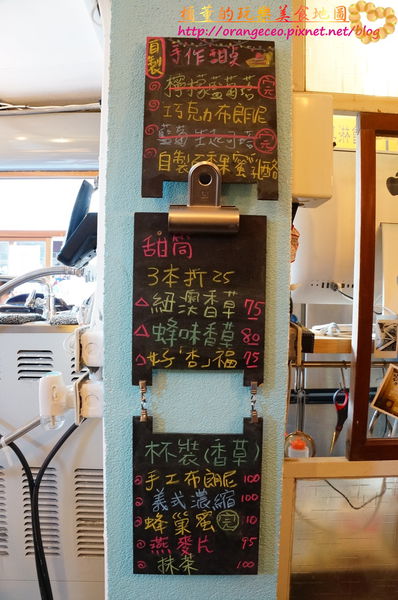 橘董的玩樂美食地圖
http://orangeceo.pixnet.net/blog
自製 手作甜點
檸檬藍莓塔 完
巧克力布朗尼
藍莓生起司塔 完
自製百香果蜜乳酪
甜筒
3本折25
紐澳香草 75
蜂味香草 80
好「杏」福 75
杯裝(香草)
手工布朗尼 100
義式濃縮 100
蜂巢蜜 完 10
燕麥片 95
抹茶 100